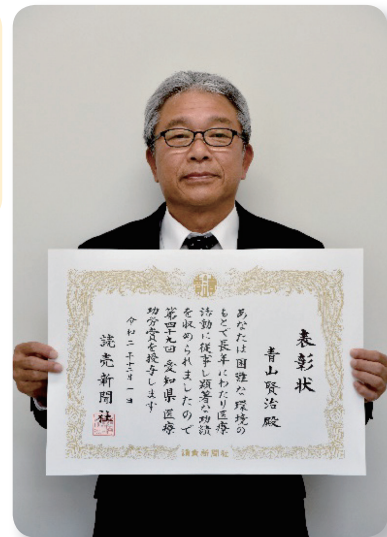 表彰状
青山賢治殿
あなたは困難な環境の
もとで長年にわたり医療
活動に従事し顕著な功績
を収められましたので
第四十九回愛知県医療
功労賞を授与します
令和二年十二月一日
読売新聞社
讀賣新聞社